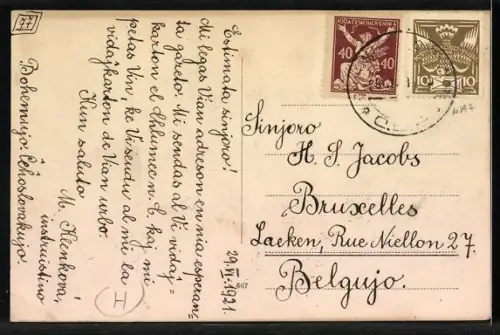 77
Estimata sinjoro!
Mi legas Vian adreson en nia esperan-
ta gazeto. Mi sendas al Vi vidaj-
karton el Chlumce n. C, kaj mi
petas Vin, ke Vi sendu al mi la
vidajkarton de Vian urbo.
Kun saluto
M. Klenková,
instruistino
Bohemujo. Čehoslovakujo.
29/VI. 1921.
I
607
POŠTA ČESKOSLOVENSKÁ
40 40
10 10
Sinjoro
H. S. Jacobs
Bruxelles
Laeken, Rue Niellon 27.
Belgujo.